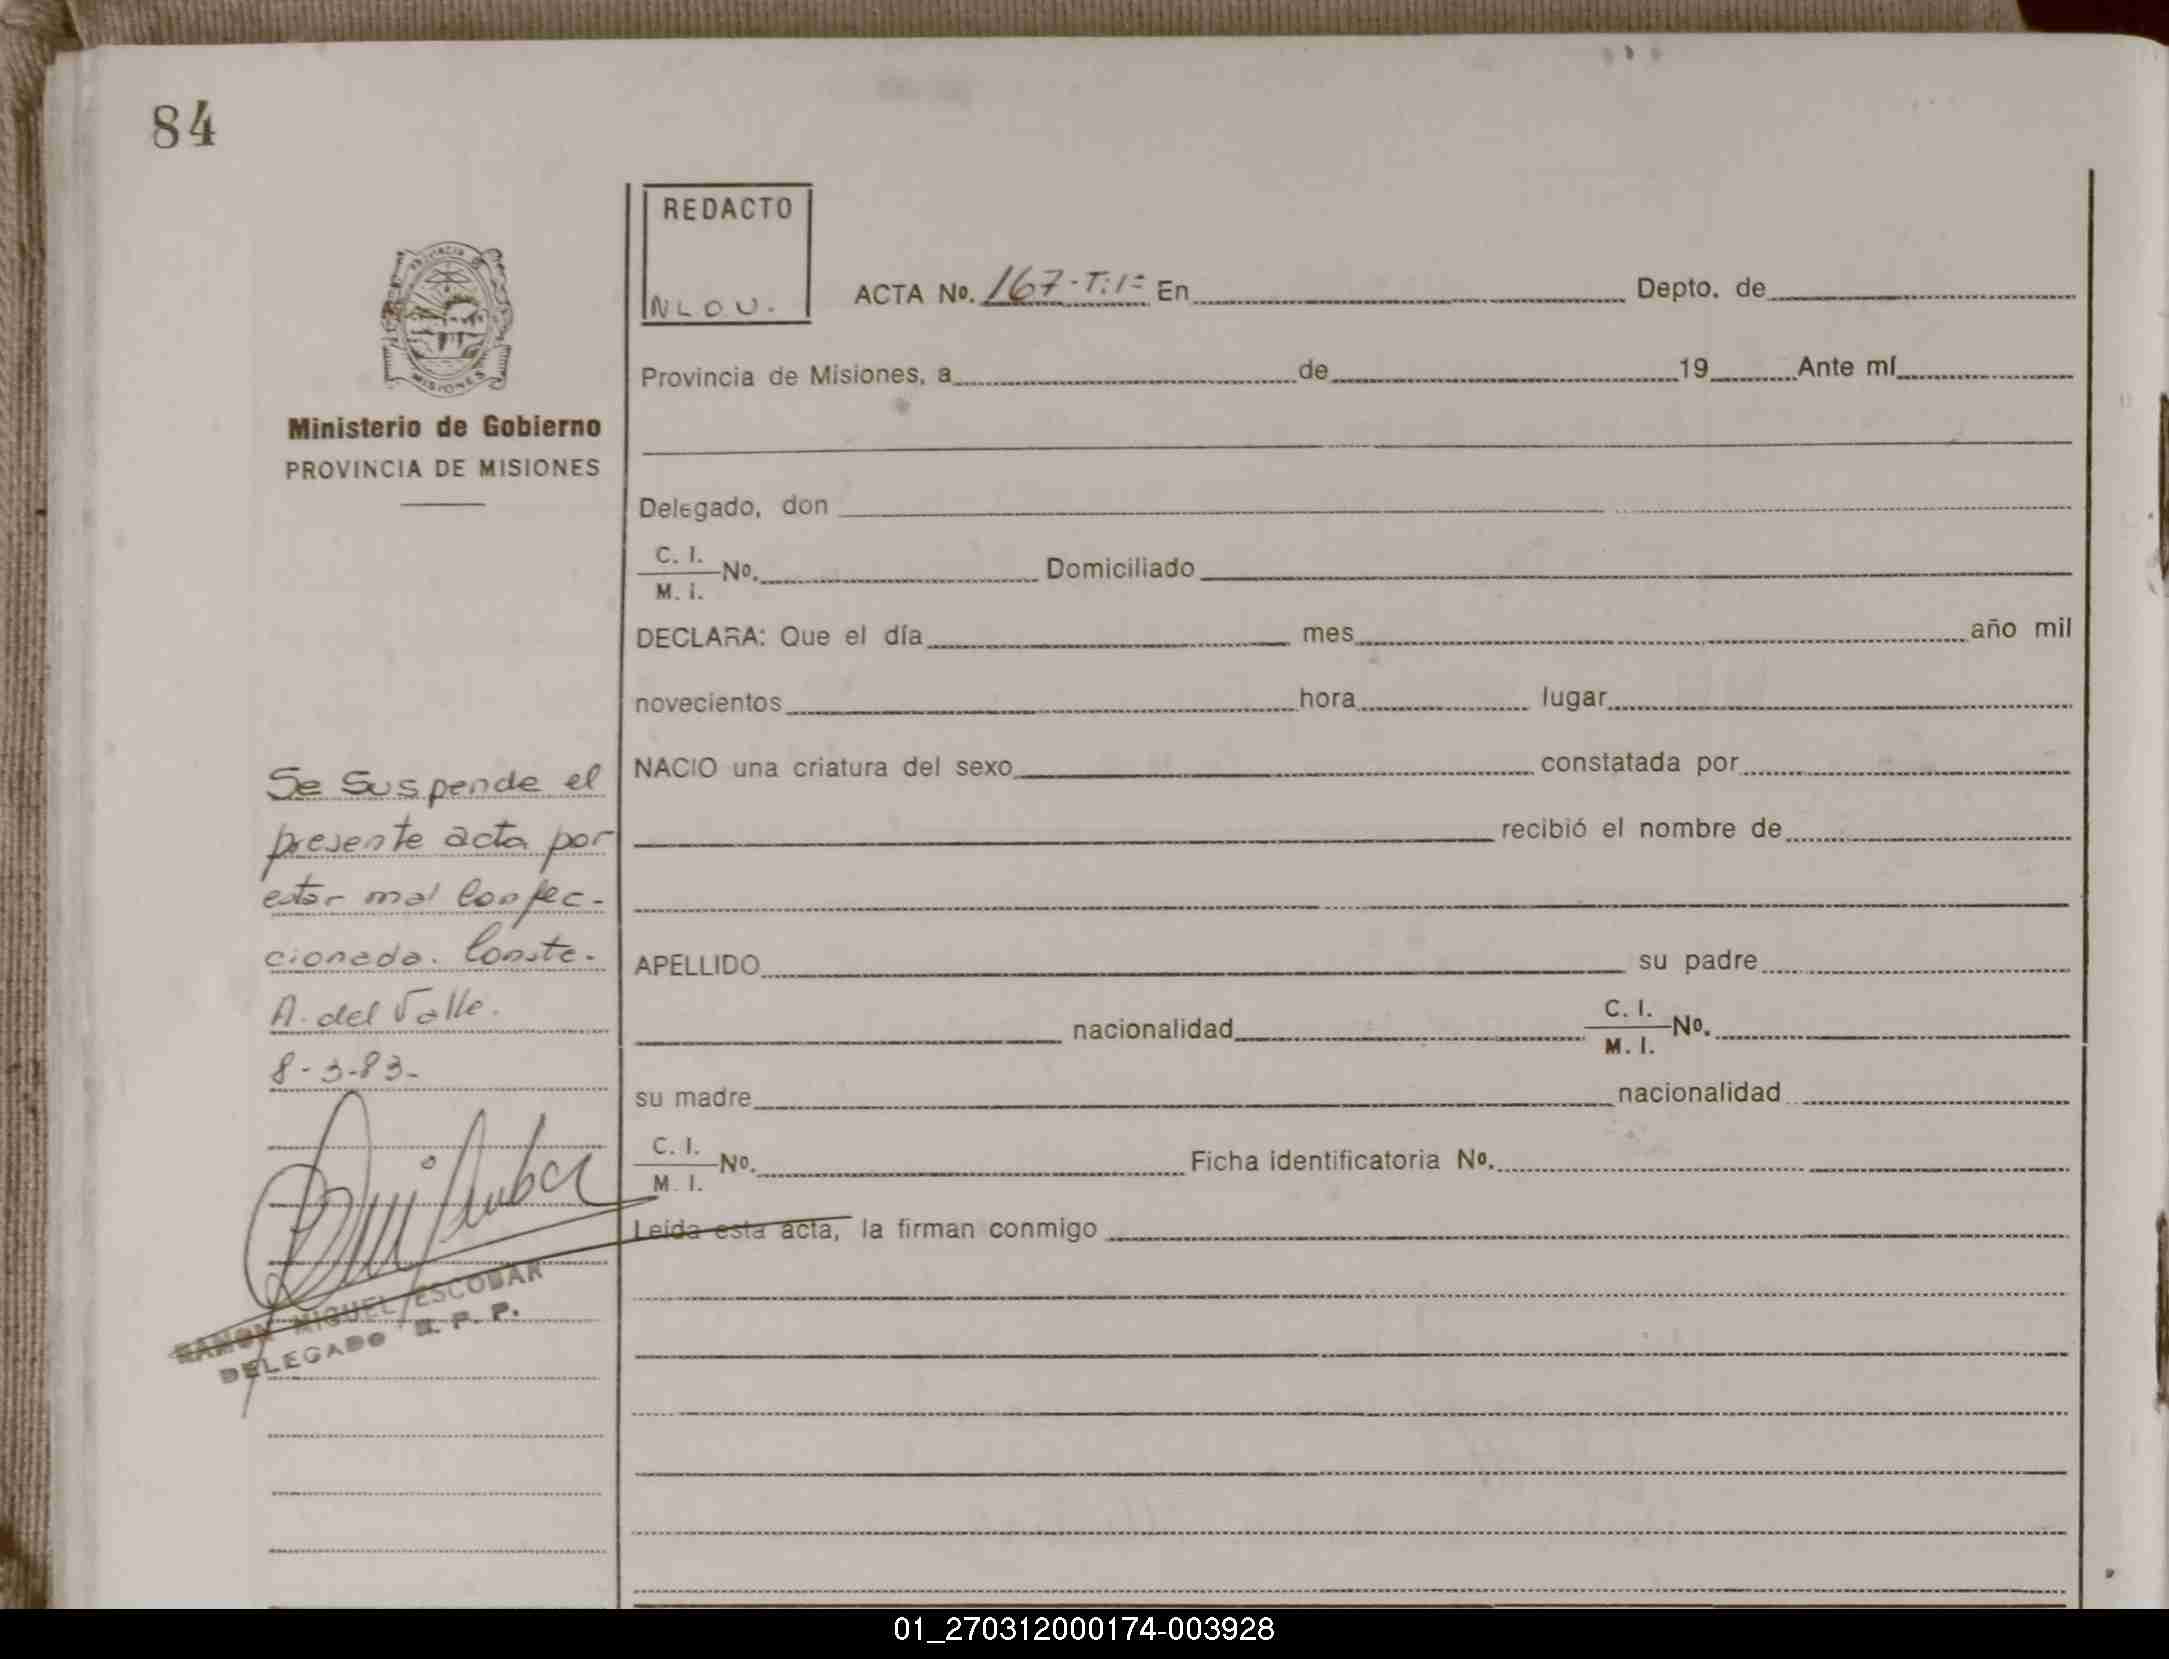 84
REDACTO
NLOU.
ACTA No. 167-T:1= En Depto. de
PROVINCIA DE
MISIONES
Ministerio de Gobierno
PROVINCIA DE MISIONES
Provincia de Misiones, a de 19 Ante mí
Delegado, don
C. I.
M. I. No. Domiciliado
DECLARA: Que el día mes año mil
novecientos hora lugar
NACIO una criatura del sexo constatada por
recibió el nombre de
APELLIDO su padre
nacionalidad C. I.
M. I. No.
su madre nacionalidad
C. I.
M. I. No. Ficha identificatoria No.
Leída esta acta, la firman conmigo
Se Suspende el
presente acta por
estar mal Confec-
cionada. Conste.
A. del Valle.
8-3-83-
RAMON MIGUEL ESCOBAR
DELEGADO R. P. P.
01_270312000174-003928